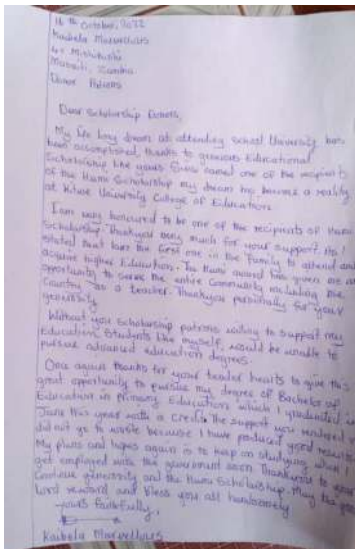 16th October, 2022
Kaibela Marvellours
Mufulira, Zambia
Dear Scholarship Donors,
My life long dream at attending school University has
been accomplished, thanks to generous Educational
Scholarship like yours. Since named one of the recipients
of the Humi Scholarship my dream has become a reality
at Kitwe University College of Education.
I am very honoured to be one of the recipients of Humi
Scholarship. Thankyou very much for your support. As I
stated that I am the first one in the family to attend and
acquire higher Education. The Humi award has given me an
opportunity to serve the entire Community including the
Country as a teacher. Thankyou personally for your
generosity.
Without you scholarship patrons willing to support my
Education, Students like myself, would be unable to
pursue advanced education degrees.
Once again thanks for your tender hearts to give this
great opportunity to pursue my degree of Bachelor of
Education in Primary Education which I graduated in
June this year with a credit. The support you rendered
did not go to waste because I have produced good results.
My plans and hopes again is to keep on studying when I
get employed with the government soon. Thankyou to your
Continue generosity and the Humi Scholarship. May the good
Lord reward and bless you all handsomely
yours faithfully,
Kaibela Marvellours